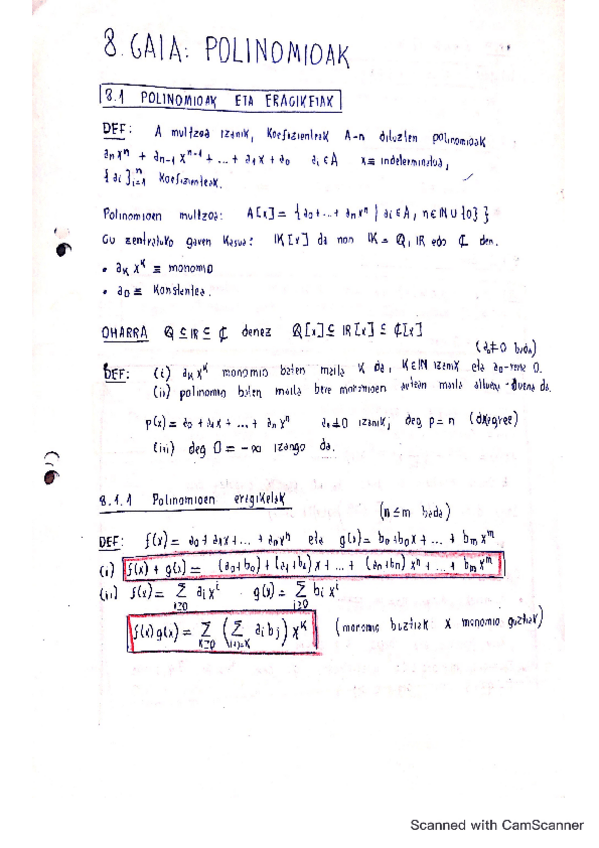 8. GAIA: POLINOMIOAK
8.1 POLINOMIOAK ETA ERAGIKETAK
DEF: A multzoa izanik, koefizienteak A-n dituzten polinomioak
aₙxⁿ + aₙ₋₁xⁿ⁻¹ + ... + a₁x + a₀ aᵢ∈A x ≡ indeterminatua,
{aᵢ}ⁿᵢ₌₁ koefizienteak.
Polinomioen multzoa: A[x] = {a₀+...+aₙxⁿ | aᵢ∈A, n∈ℕ∪{0}}
Gu zentratuko garen kasua: 𝕂[x] da non 𝕂 = ℚ, ℝ edo ℂ den.
• aₖxᵏ ≡ monomio
• a₀ ≡ konstantea.
OHARRA ℚ ⊆ ℝ ⊆ ℂ denez ℚ[x] ⊆ ℝ[x] ⊆ ℂ[x]
(a₀≠0 bada)
DEF: (i) aₖxᵏ monomio baten maila k da, k∈ℕ izanik eta a₀-rena 0.
(ii) polinomio baten maila bere monomioen artean maila altuena duena da.
p(x) = a₀ + a₁x + ... + aₙxⁿ aₙ≠0 izanik, deg p = n (degree)
(iii) deg 0 = -∞ izango da.
8.1.1 Polinomioen eragiketak
(n≤m bada)
DEF: f(x) = a₀ + a₁x + ... + aₙxⁿ eta g(x) = b₀+b₀x + ... + bₘxᵐ
(i) f(x) + g(x) = (a₀+b₀) + (a₁+b₁)x + ... + (aₙ+bₙ)xⁿ + ... + bₘxᵐ
(ii) f(x) = Σ_{i≥0} aᵢxⁱ g(x) = Σ_{j≥0} bᵢxⁱ
f(x)g(x) = Σ_{k≥0} (Σ_{i+j=k} aᵢbⱼ) xᵏ (monomio guztiak x monomio guztiak)
Scanned with CamScanner